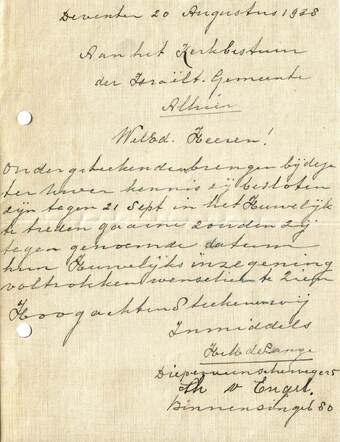 Deventer 20 Augustus 1928
Aan het Kerkbestuur
der Israëlt. Gemeente
Alhier
WelEd. Heeren!
Ondergeteekenden brengen bij deze
ter Uwer kennis zij besloten
zijn tegen 21 Sept in het Huwelijk
te treden gaarne zouden zij
tegen genoemde datum
hun Huwelijks inzegening
voltrokken wenschen te Zien
Hoogachtend teekenen wij
Inmiddels
de Lange
Diepenveenscheweg 25
Th v Engel.
Binnensingel 80